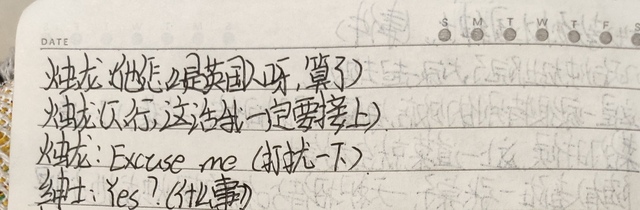 S M T W T F S
DATE
烛龙:(他怎么是英国人呀,算了)
烛龙(不行,这活我一定要接上)
烛龙:Excuse me(打扰一下)
绅士:Yes?(什么事)